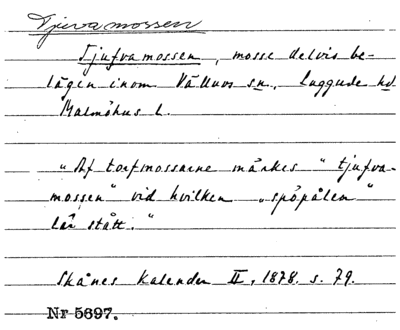 Tjuvamossen
Tjufvamossen, mosse delvis be-
lägen inom Välluvs sn, Luggude hd
Malmöhus l.
"Af torfmossarne märkes "tjufva-
mossen" vid hvilken "spöpålen"
lär stått."
Skånes Kalender II, 1878. s. 79.
Nr 5697.